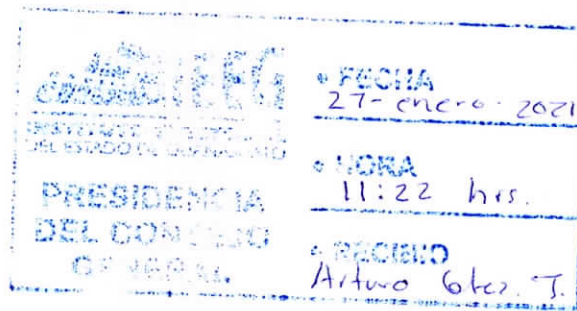 IEEG
DEL ESTADO DE GUANAJUATO
PRESIDENCIA
DEL CONSEJO
GENERAL
• FECHA
27-enero-2021
• HORA
11:22 hrs.
• RECIBIÓ
Arturo Gtez. J.